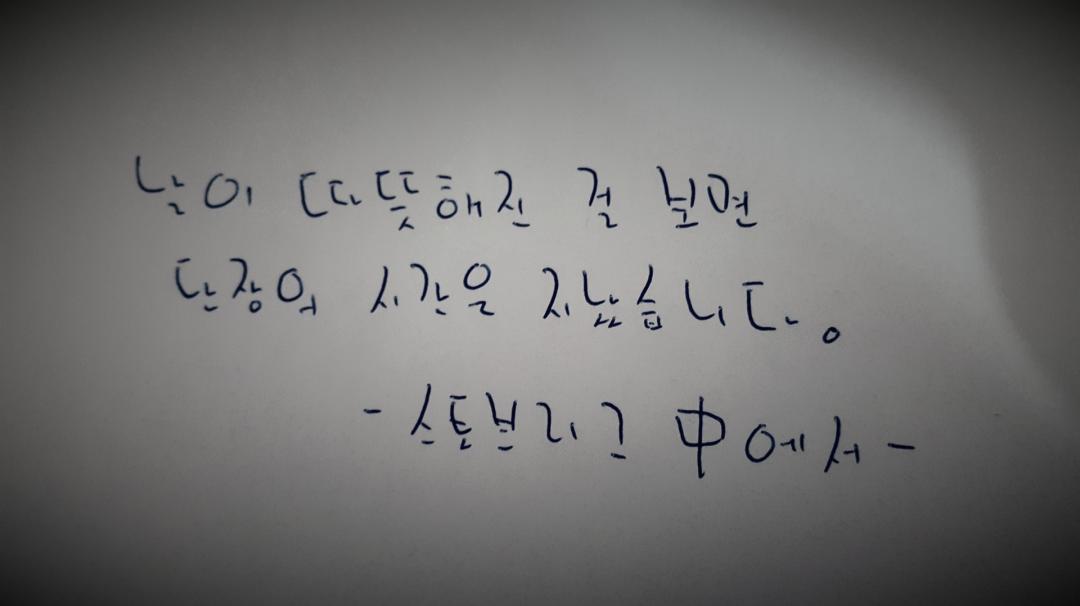 날이 따뜻해진 걸 보면
단장의 시간은 지났습니다.
- 스토브리그 中에서 -